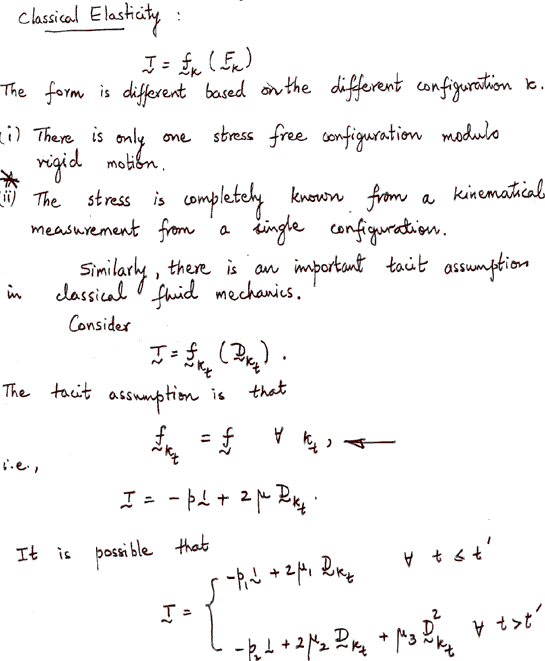 Classical Elasticity :
T = f_κ (F_κ)
The form is different based on the different configuration κ.
(i) There is only one stress free configuration modulo
rigid motion.
(ii) The stress is completely known from a kinematical
measurement from a single configuration.
Similarly, there is an important tacit assumption
in classical fluid mechanics.
Consider
T = f_κ_t (D_κ_t).
The tacit assumption is that
f_κ_t = f ∀ κ_t, ←
i.e.,
T = - p1 + 2 μ D_κ_t.
It is possible that
T = { -p₁1 + 2μ₁ D_κ_t ∀ t ≤ t'
-p₂1 + 2μ₂ D_κ_t + μ₃ D²_κ_t ∀ t > t'